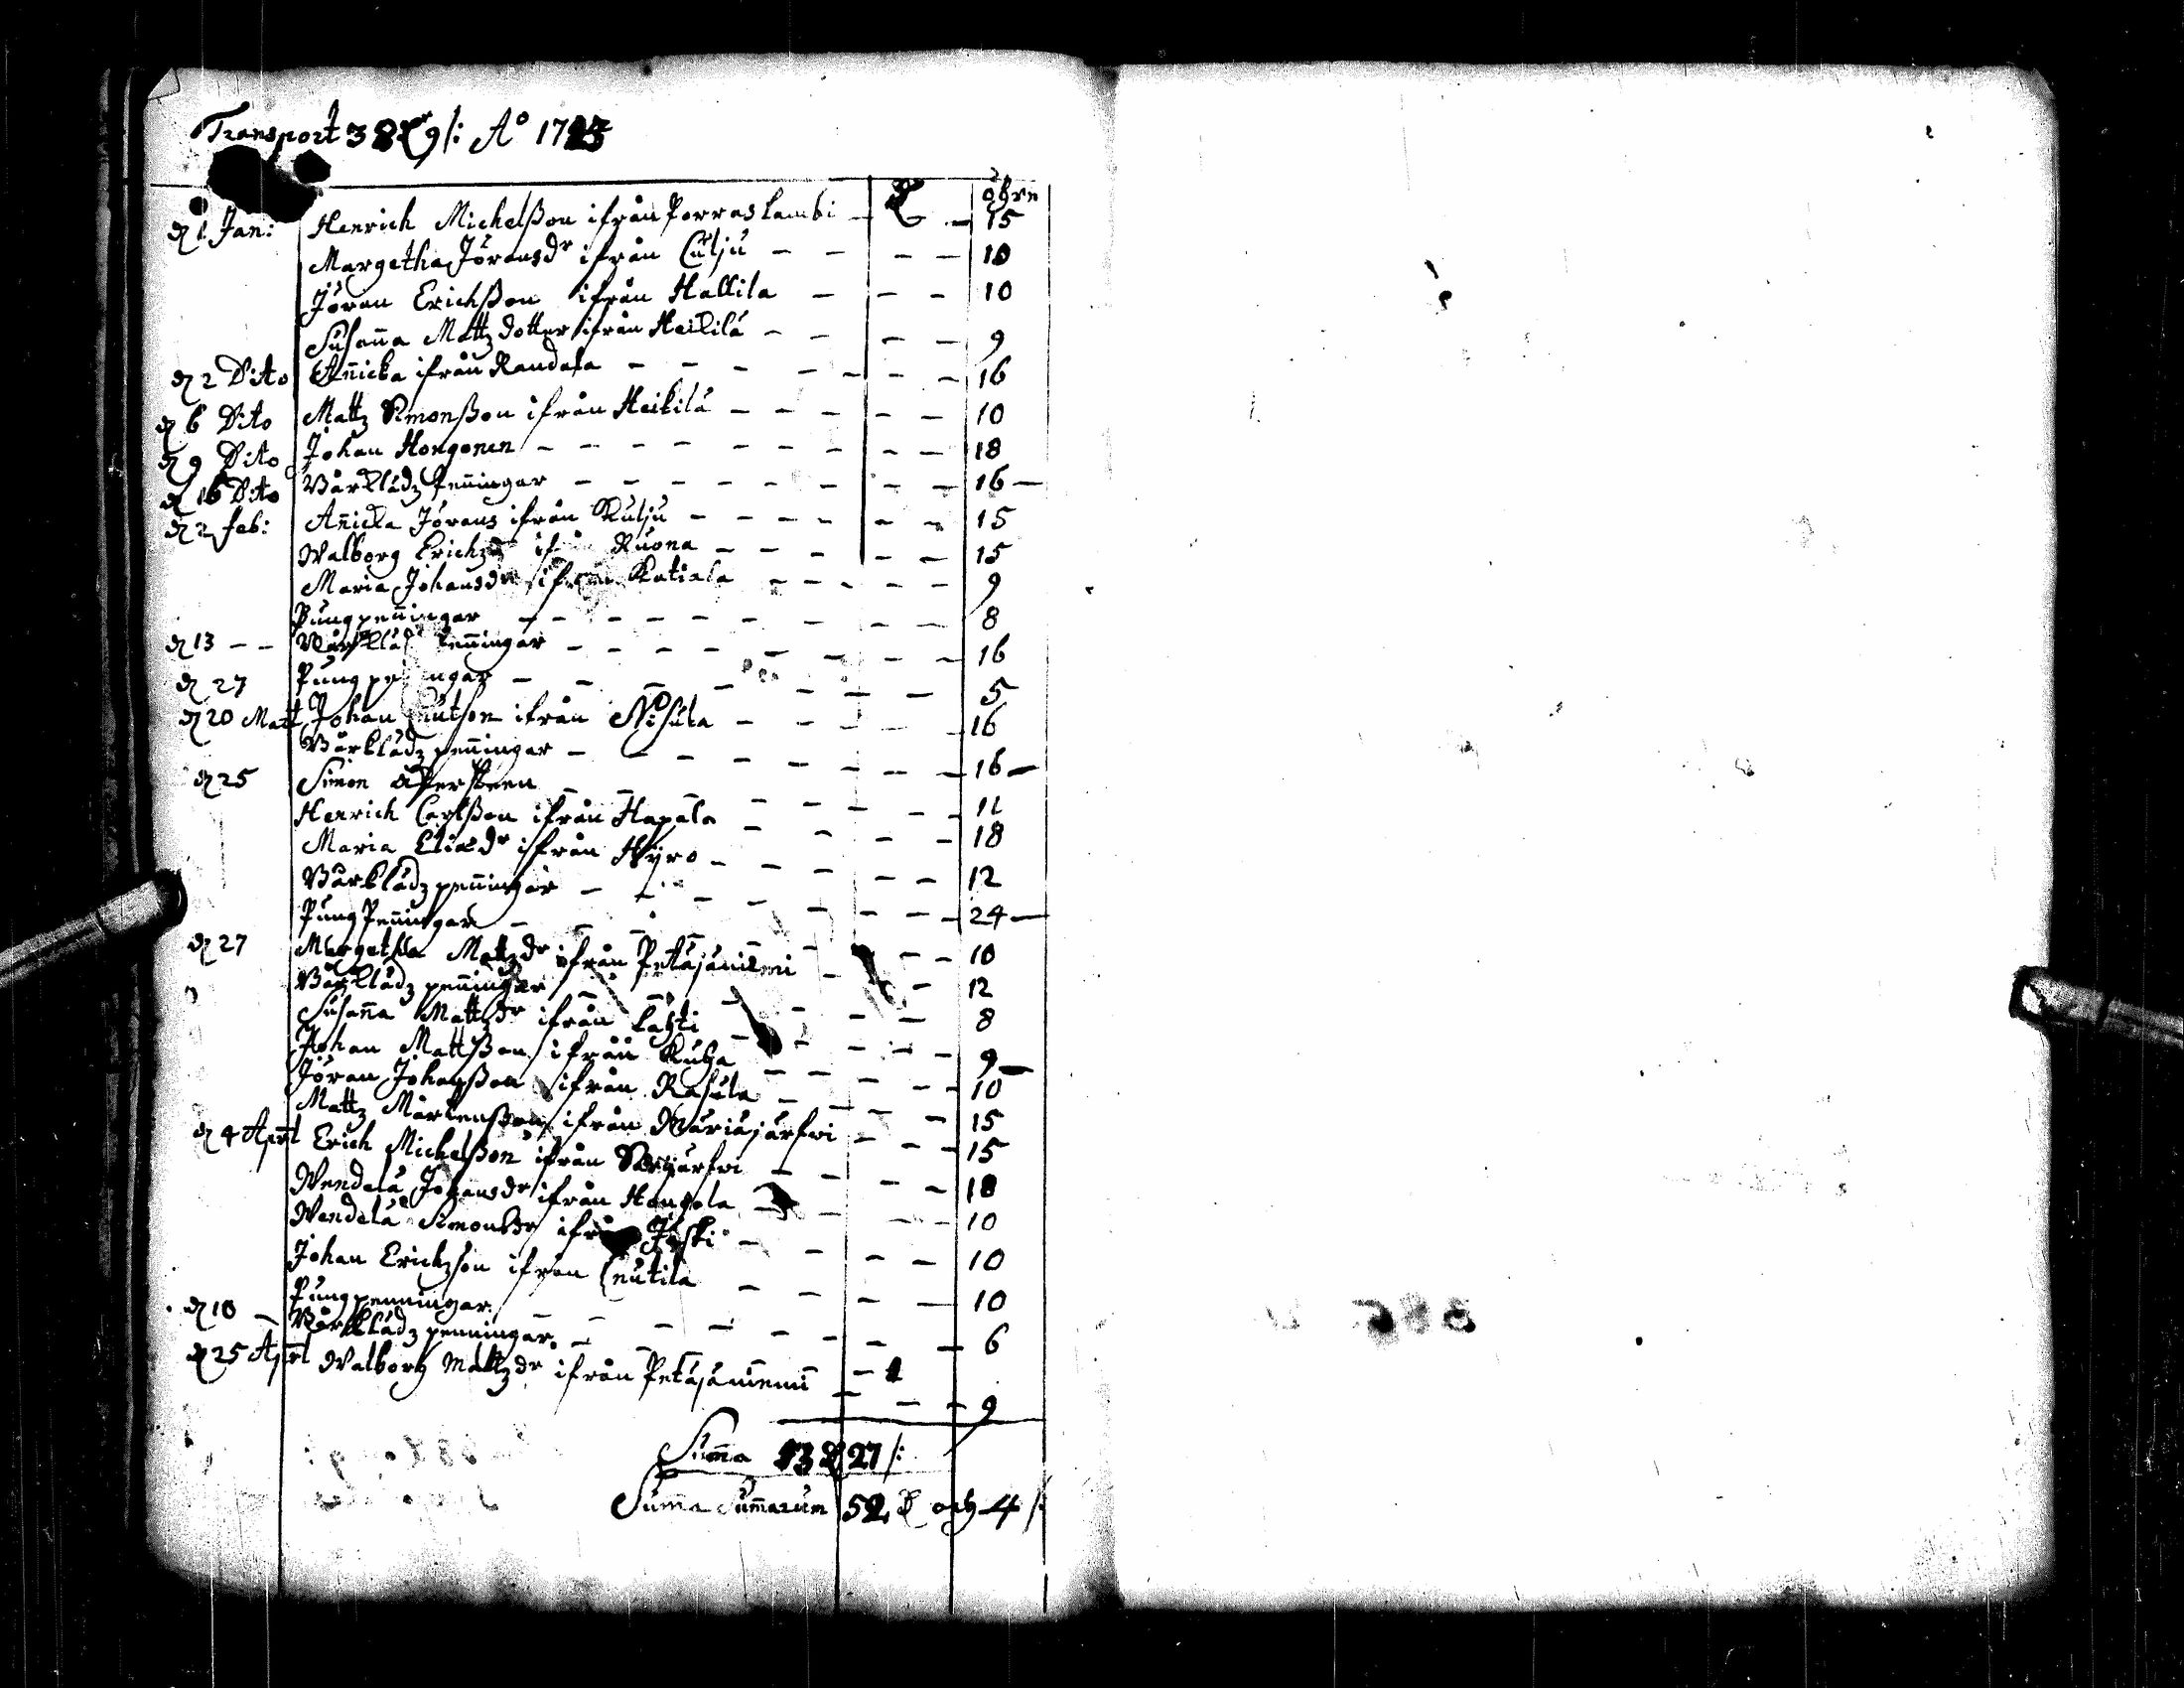 Transport 38 D 9 /: A° 1723
D öhre
d 1 Jan: Henrich Michelßon ifrån Porraslambi - - 15
Margetha Jöransdr ifrån Culju - - - - 10
Jöran Erichßon ifrån Hallila - - - 10
Susanna Mattzdotter ifrån Heikilä - - - - 9
d 2 Dito Annicka ifrån Randala - - - - - - - 16
d 6 Dito Mattz Simonßon ifrån Heikilä - - - - - - 10
d 9 Dito Johan Hongonen - - - - - - - - - - 18
d 16 Dito Vårklädz Penningar - - - - - - - - - 16 -
d 2 feb: Annicka Jörans ifrån Kulju - - - - - - 15
Walborg Erichz Ruona - - - - - - 15
Maria Johansdr ifrån Katiala - - - - - - 9
Pungpenningar - - - - - - - - - - 8
d 13 - - penningar - - - - - - - - - 16
d 27 Pung - - - - - - - - 5
d 20 Mart Johan ifrån Nisula - - - - - 16
Vårklädz penningar - - - - - - - - 16 -
d 25 Simon - - - - - - - 11
Henrich Carlßon ifrån Hapala - - - - 18
Maria Eliædr ifrån Kyro - - - - - 12
Vårklädz penningar - - - - - - - - 24 -
Pung Penningar - - - - - - - 10
d 27 Margetha Mattzdr ifrån Petäjäniemi - - 12
Vårklädz penningar - - - - - - 8
Susanna Mattzdr ifrån Lahti - - - - - 9 -
Johan Mattßon ifrån - - - - - 10
Jöran Johanßon ifrån Rasula - - - - 15
Mattz Mårtenßon ifrån - - - 15
d 4 Aprl Erich Michelßon ifrån - - - 18
Wendela Johansdr ifrån Hongola - - - - 10
Wendela Simonsdr - - - - 10
Johan Erichzson ifrån Leutila - - - - 10
Pungpenningar - - - - - - - - 6
d 10 - Vårklädz penningar - - - - 1
d 25 Aprl Walborg Mattzdr ifrån Petäjäniemi - - - 9
Summa 13 D 27 /:
Summa Summarum 52 D och 4 /: